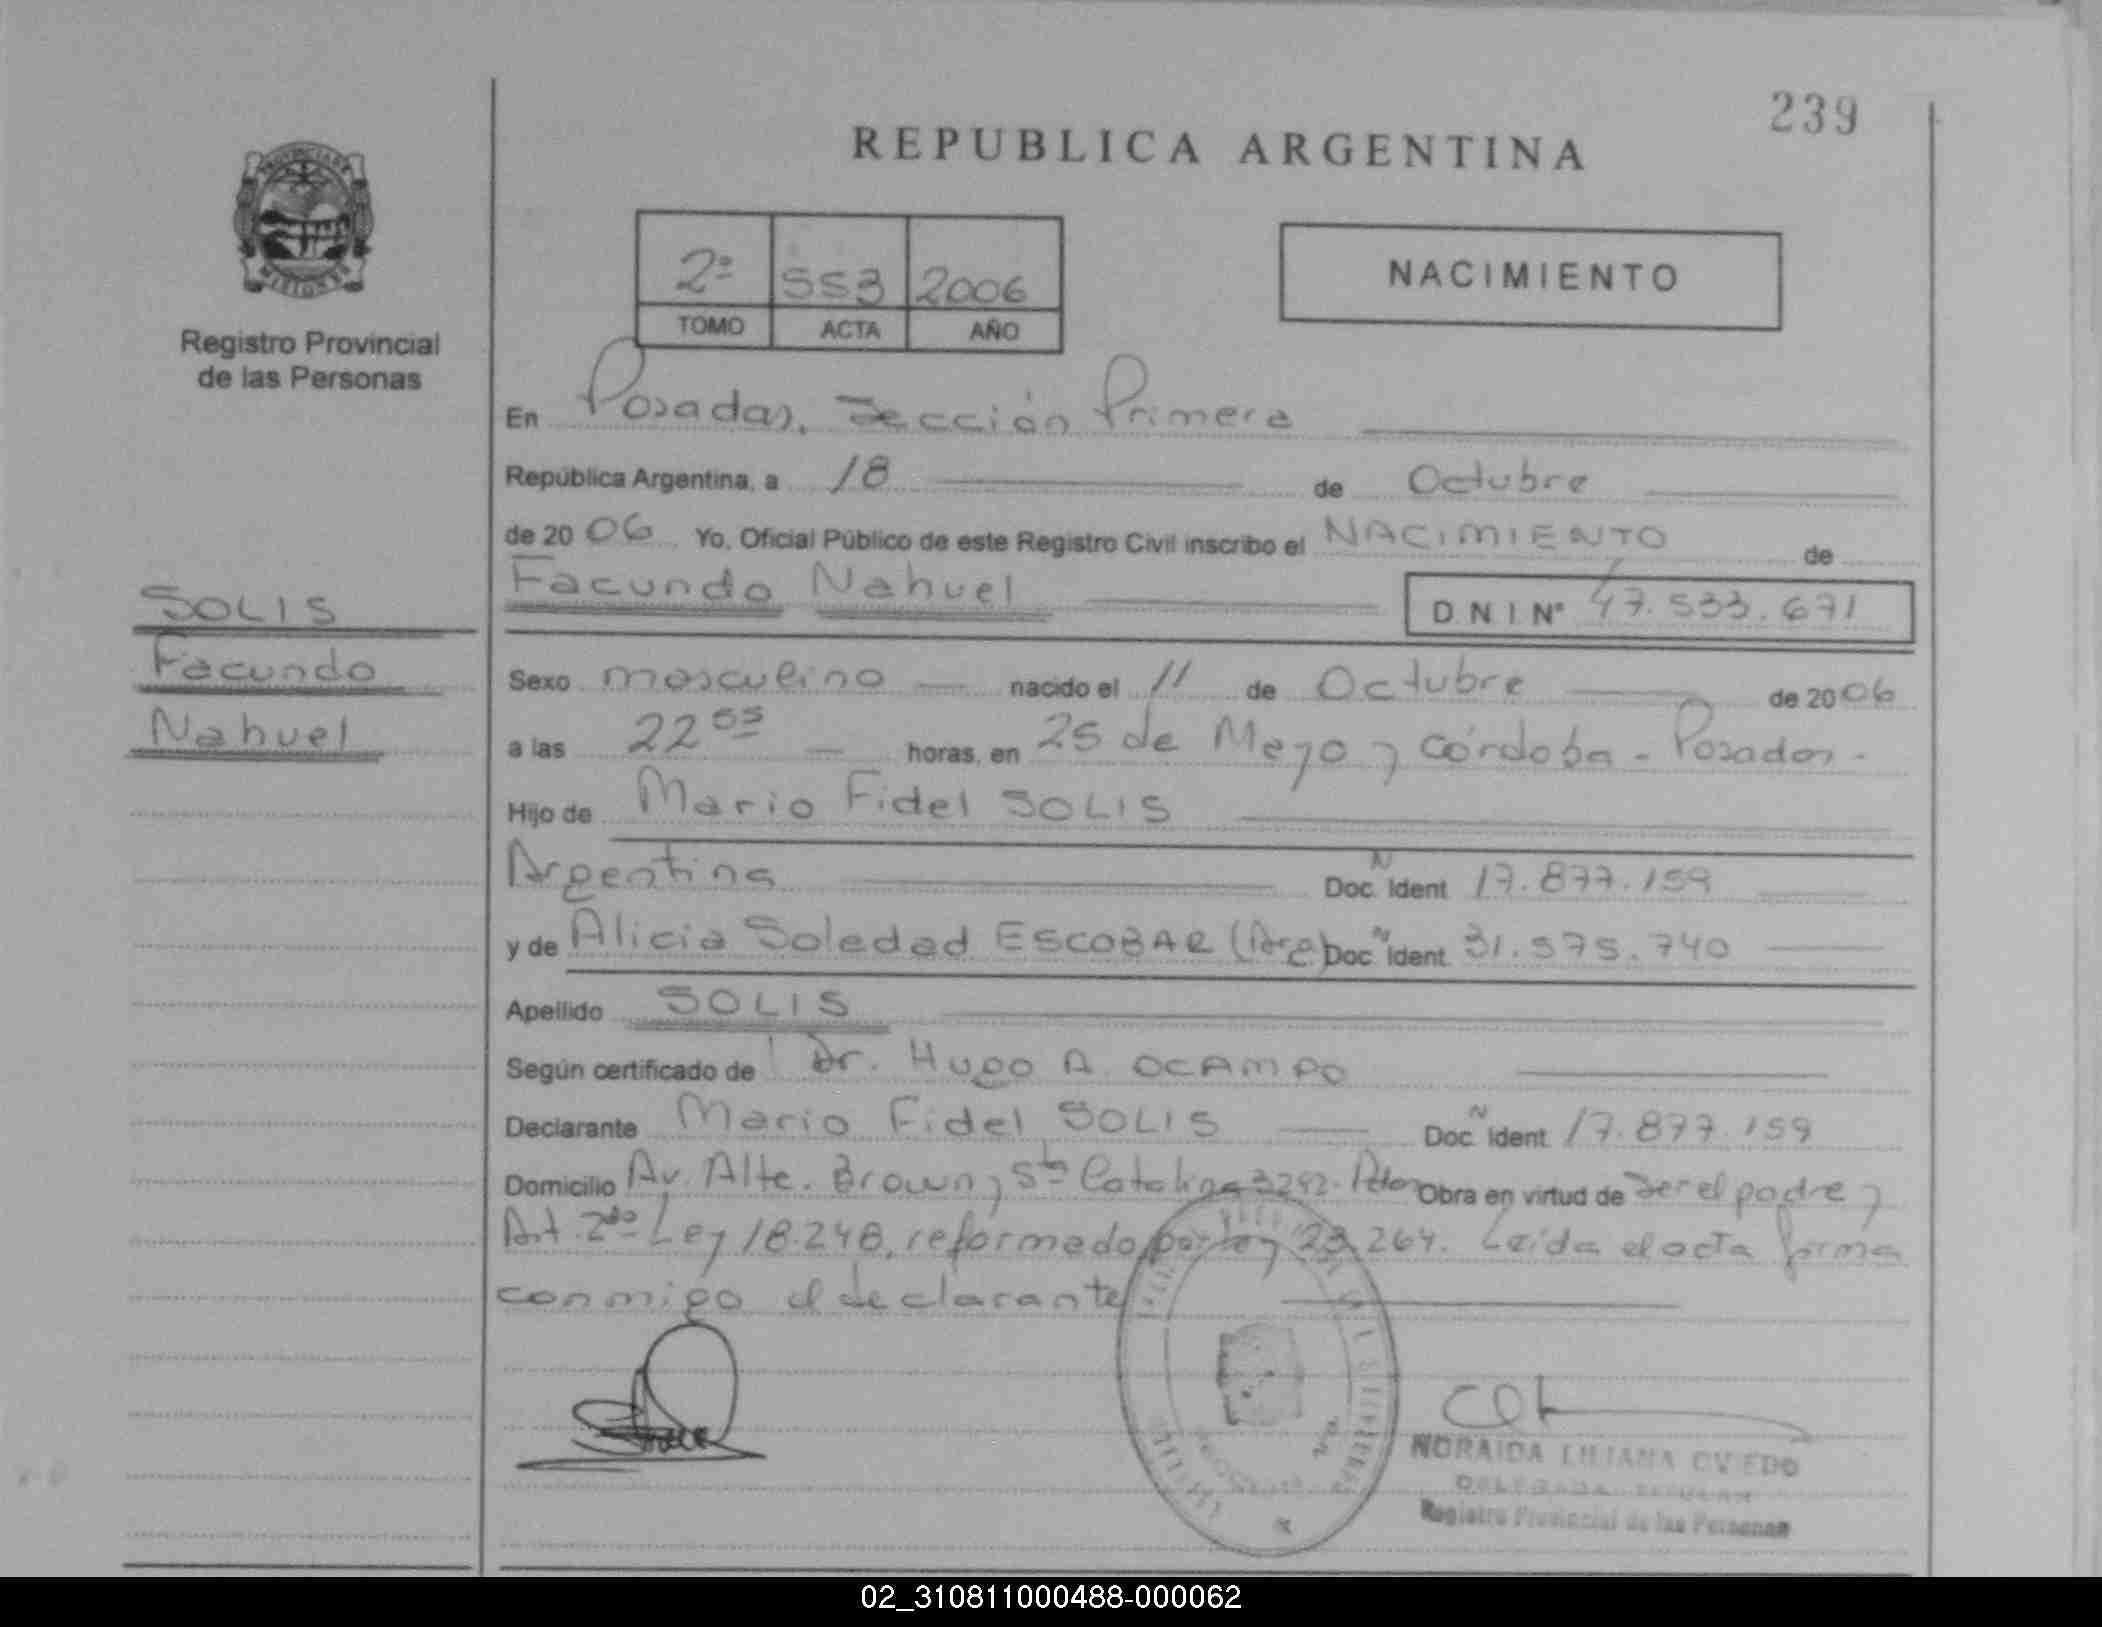 239
REPUBLICA ARGENTINA
PROVINCIA DE
MISIONES
Registro Provincial
de las Personas
2º 553 2006
TOMO ACTA AÑO
NACIMIENTO
En Posadas, Sección Primera
República Argentina, a 18 de Octubre
de 20 06 Yo, Oficial Público de este Registro Civil inscribo el NACIMIENTO de
Facundo Nahuel D.N.I Nº 47.533.671
SOLIS
Facundo
Nahuel
Sexo masculino nacido el 11 de Octubre de 20 06
a las 22 05 horas, en 25 de Mayo y Córdoba - Posadas -
Hijo de Mario Fidel SOLIS
Argentina Doc. N Ident 17.877.159
y de Alicia Soledad ESCOBAR (Arg) Doc. N Ident. 31.575.740
Apellido SOLIS
Según certificado de Dr. Hugo A. OCAMPO
Declarante Mario Fidel SOLIS Doc. N Ident. 17.877.159
Domicilio Av. Alte. Brown y Sta Catalina 3292. Obra en virtud de ser el padre y
Art. 2do Ley 18.248, reformado por Ley 23.264. Leída el acta firma
conmigo el declarante
NORAIDA LILIANA OVIEDO
DELEGADA TITULAR
Registro Provincial de las Personas
02_310811000488-000062